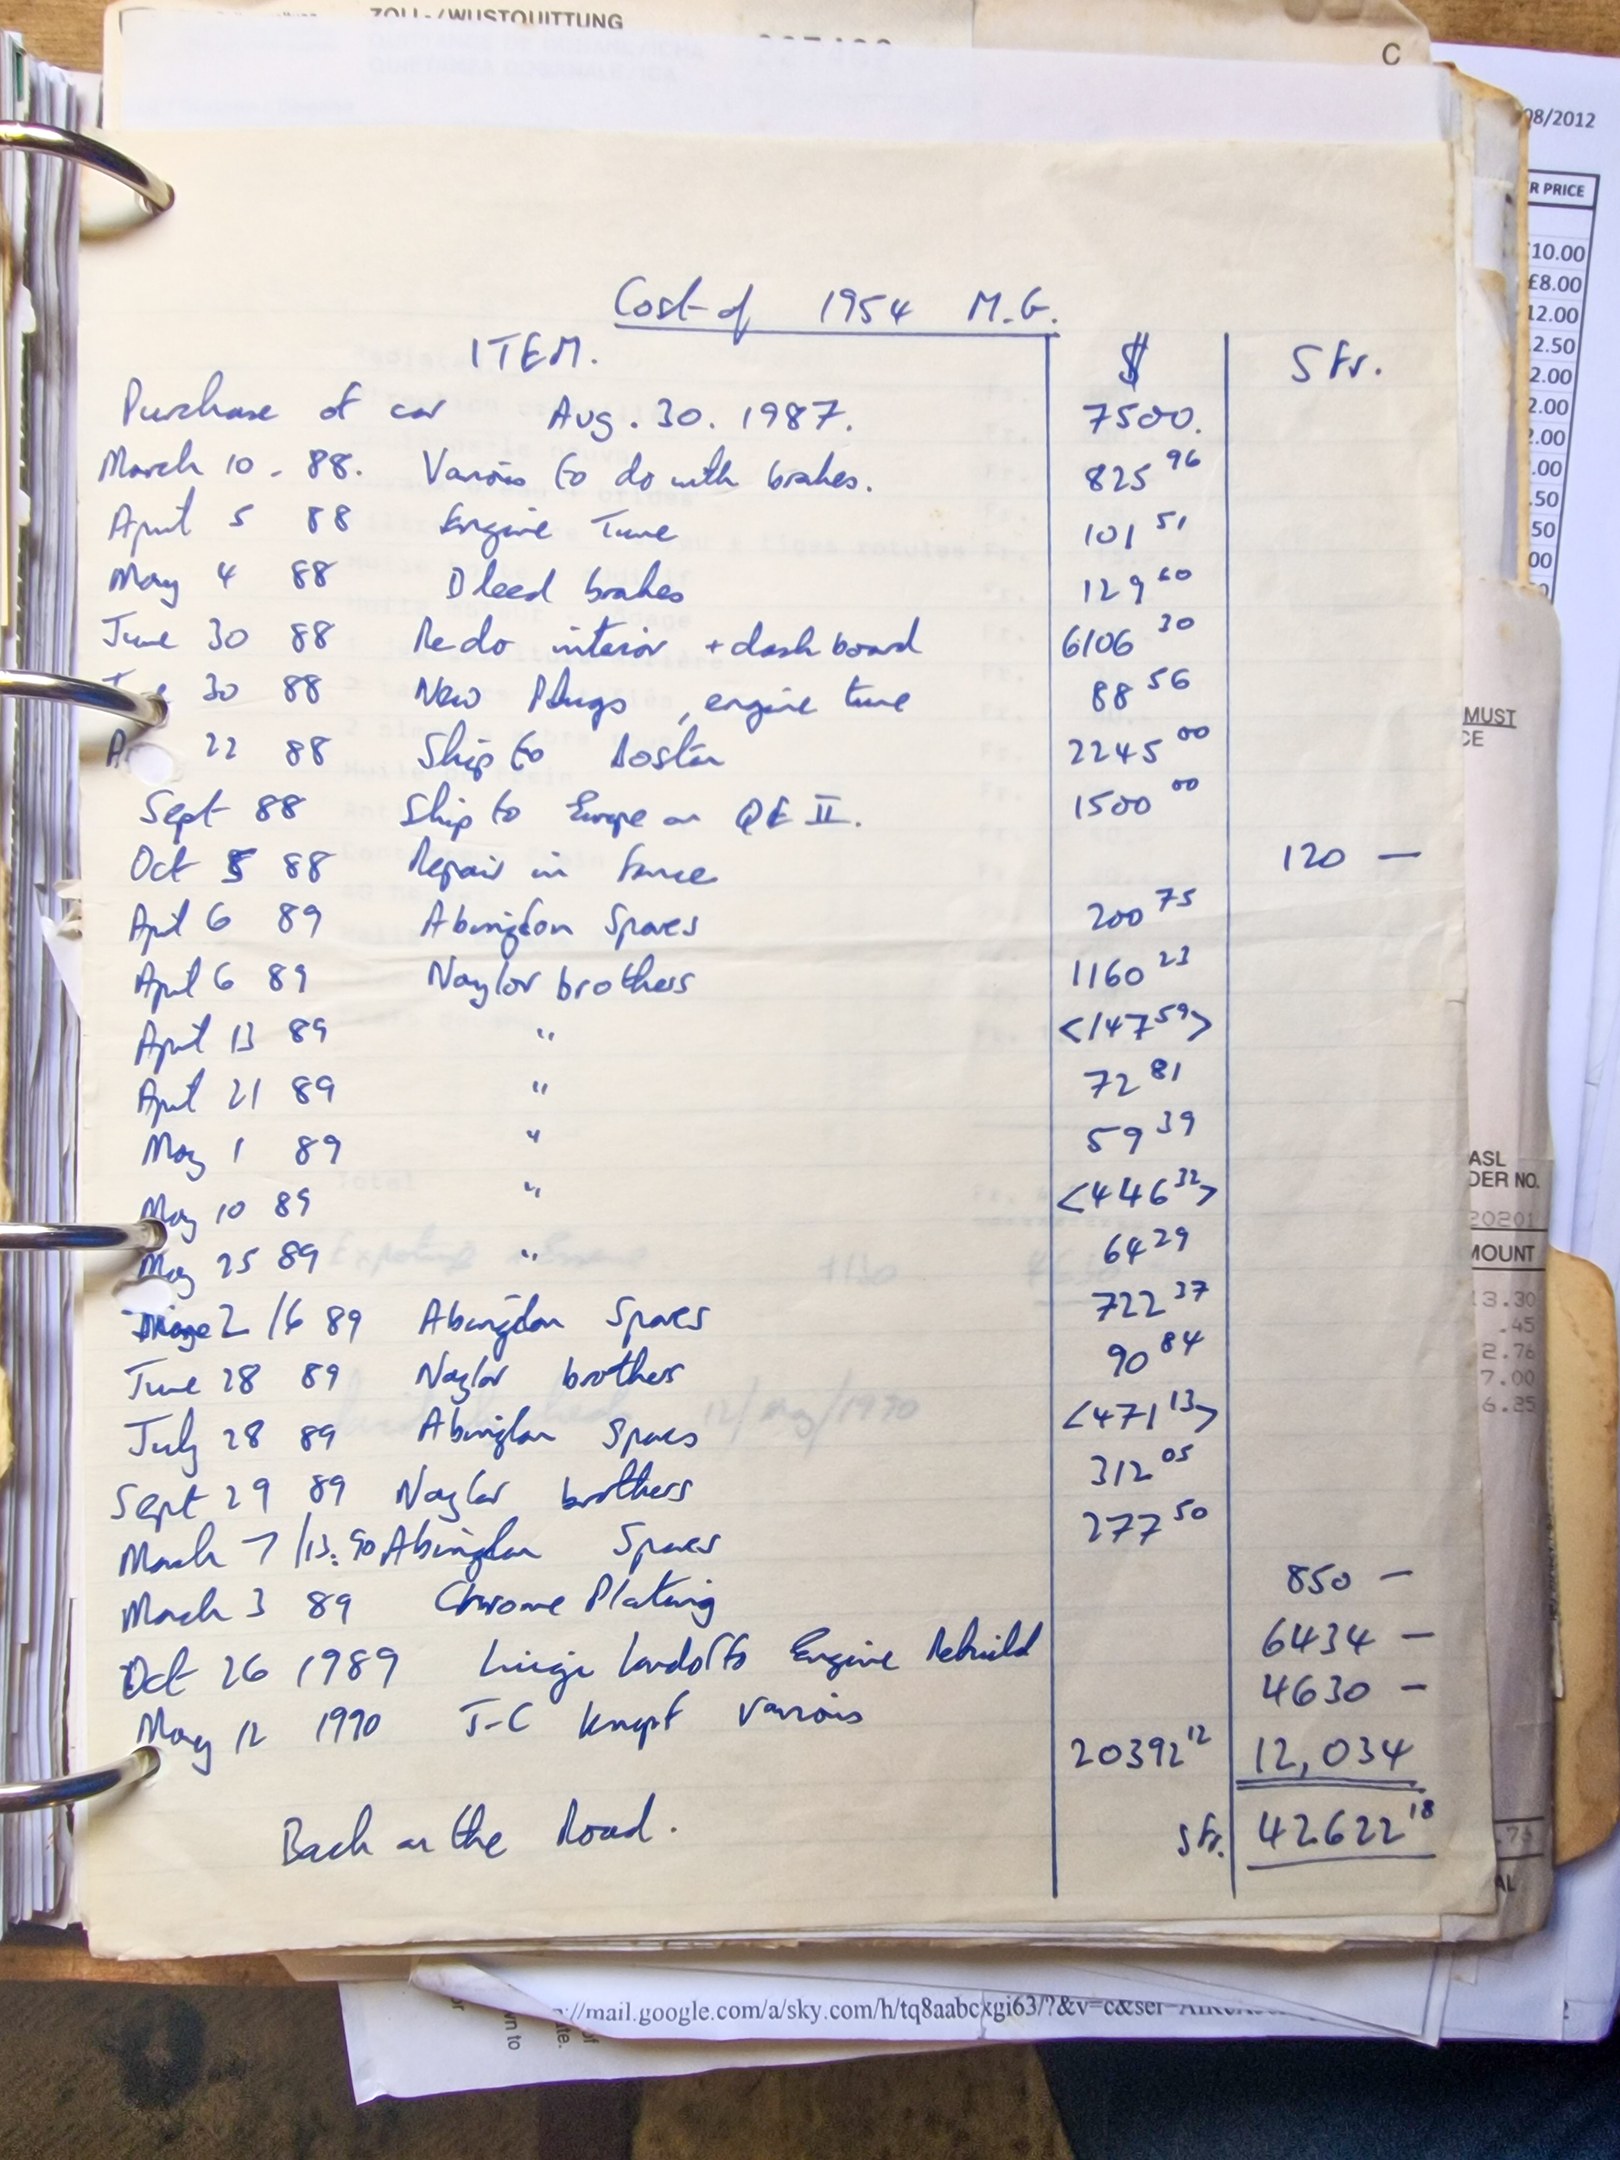 ZOLL-/WUSTQUITTUNG
C
08/2012
R PRICE
£10.00
£8.00
12.00
2.50
2.00
2.00
2.00
.00
.50
50
00
MUST
CE
ASL
DER NO.
20201
MOUNT
13.30
.45
2.76
7.00
6.25
.76
AL
Cost of 1954 M.G.
ITEM. $ S Fr.
Purchase of car Aug. 30. 1987. 7500.
March 10 - 88. Varois to do with brakes. 825 96
April 5 88 Engine Tune 101 51
May 4 88 Bleed brakes 129 60
June 30 88 Redo interior + dash board 6106 30
30 88 New Plugs, engine tune 88 56
22 88 Ship to Boston 2245 00
Sept 88 Ship to Europe on QE II. 1500 00
Oct 5 88 Repair in France 120 —
April 6 89 Abingdon Spares 200 75
April 6 89 Naylor brothers 1160 23
April 13 89 " <147 59>
April 21 89 " 72 81
May 1 89 " 59 39
May 10 89 " <446 32>
May 25 89 " 64 29
2/6 89 Abingdon Spares 722 37
June 28 89 Naylor brothers 90 84
July 28 89 Abingdon Spares <471 13>
Sept 29 89 Naylor brothers 312 05
March 7/13. 90 Abingdon Spares 277 50
March 3 89 Chrome Plating 850 —
Oct 26 1989 Luigi Engine Rebuild 6434 —
May 12 1990 J-C Varois 4630 —
20392 12 12,034
Back on the Road. S Fr. 42622 18
://mail.google.com/a/sky.com/h/tq8aabcxgi63/?&v=c&ser=
vn to
ate.
of